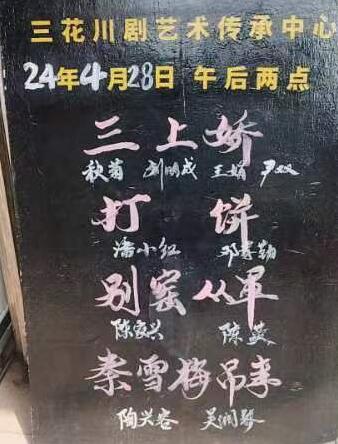 三花川剧艺术传承中心
24年4月28日 午后两点
三上娇
秋菊 刘明成 王娟 尹双
打饼
潘小红 邓春勤
别窑从军
陈家兴 陈英
秦雪梅吊孝
陶兴容 吴润琴